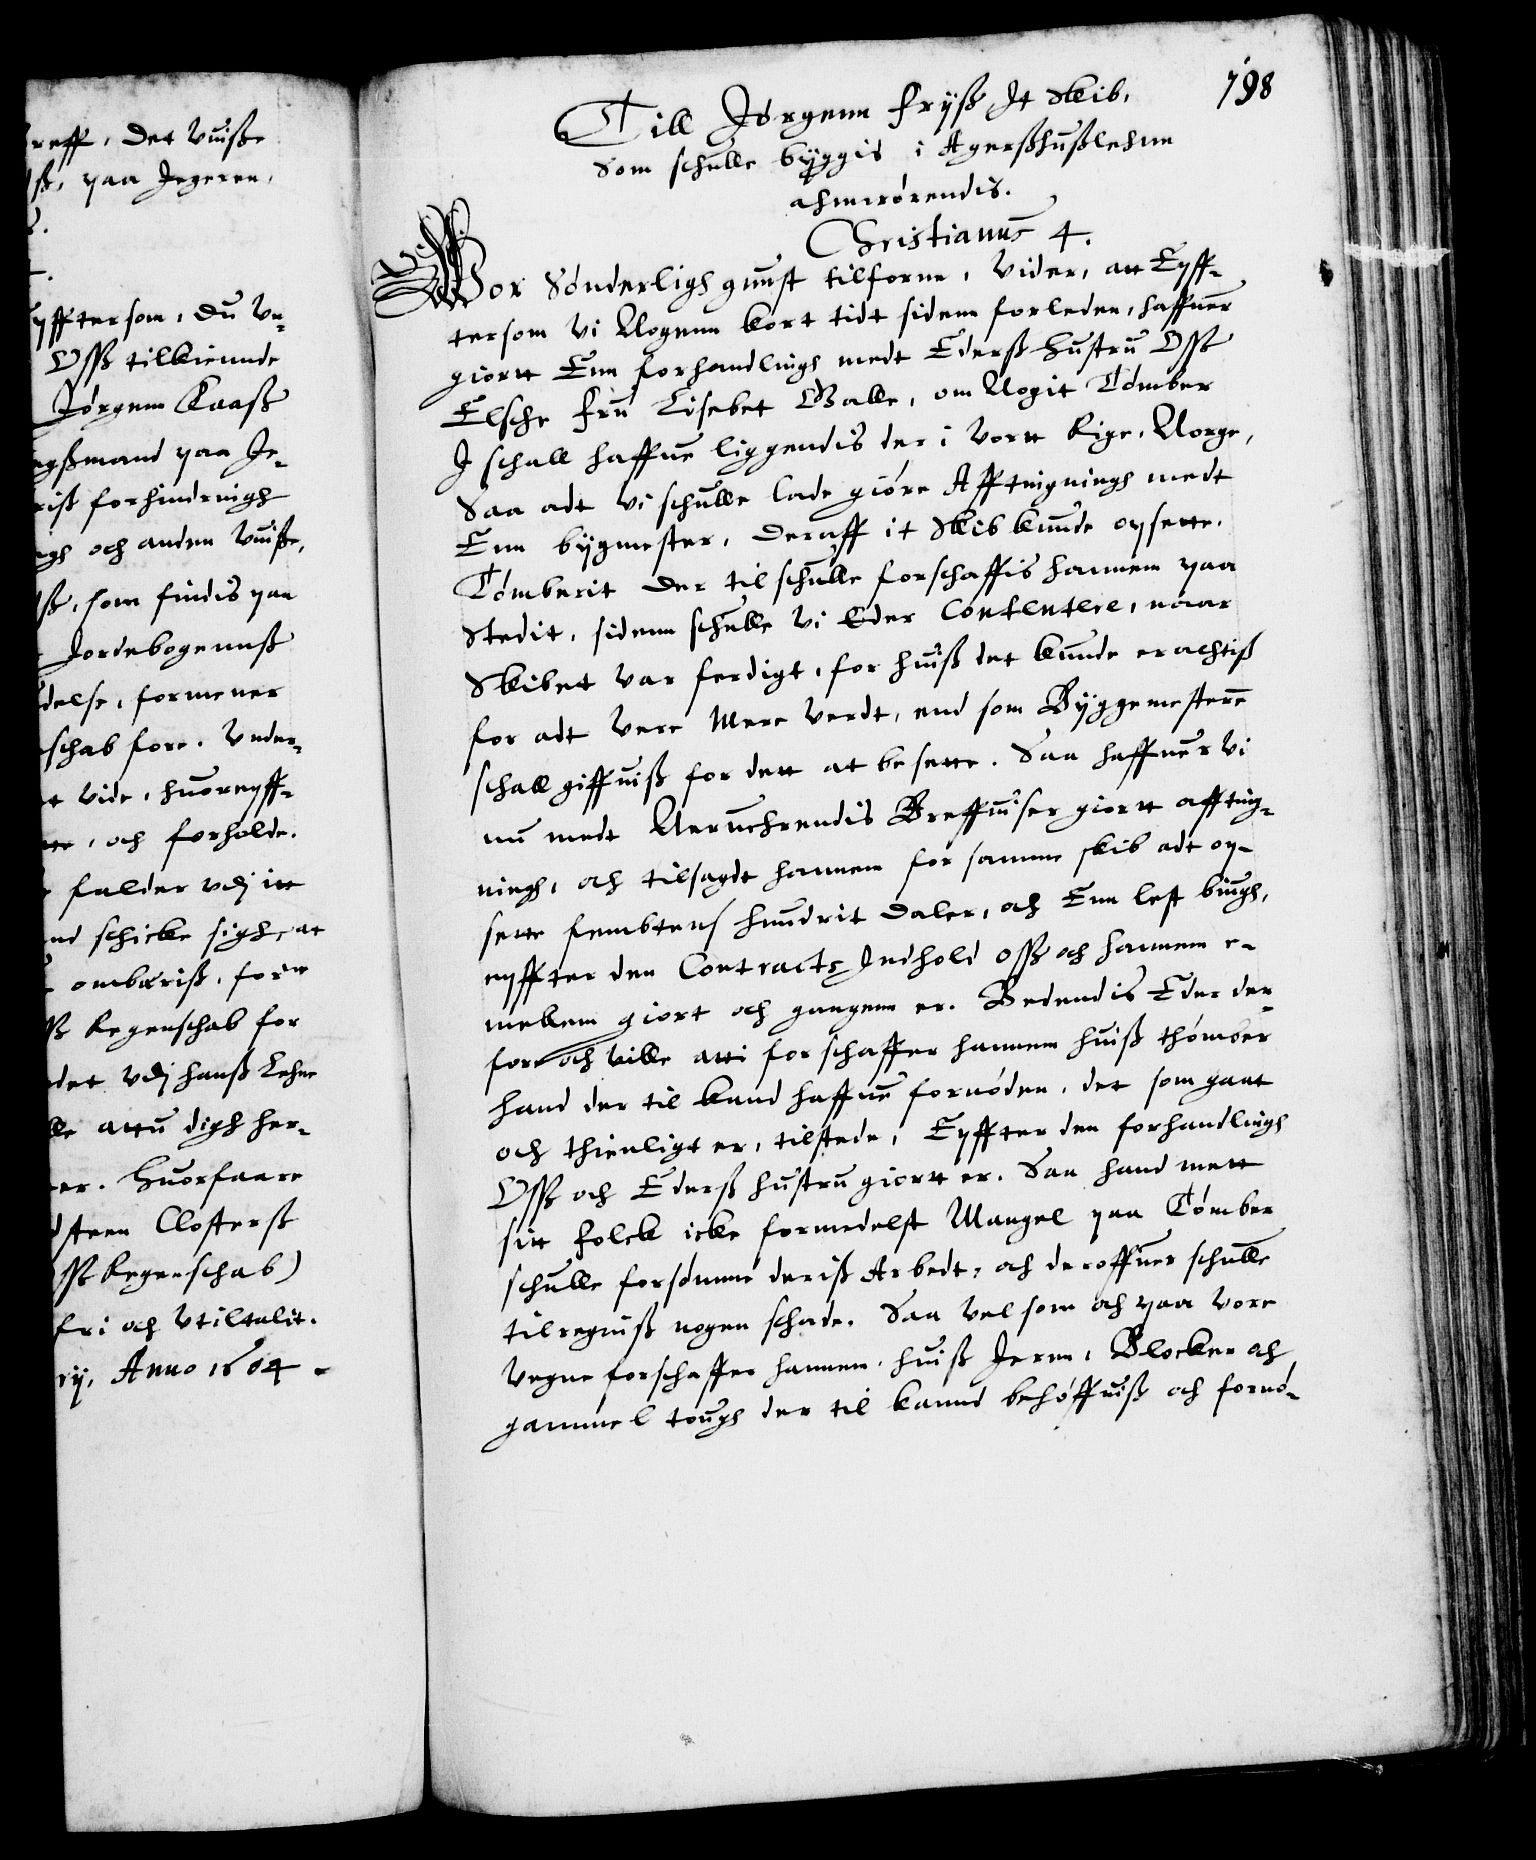 reff, det Vuisse
ß, paa Jegeren,
yfftersom, du Vn-
Oß tilkiennde
Jørgenn Kaaß
ngßmand paa Je-
riß forhindringh
ngh och anden Vuisse,
ß, som findis paa
Jordebogennß
delse, formener
schab fore. Vnder-
t vide, huoreyff-
tte, och forholde.
falder vdj itt
nd schicke sigh, at
ombæriß, forn
ß Regenschab for
det vdj hanß Lehne
lle attu digh her-
er. Huorfaare
dsteen Closterß
ß Regenschab)
fri och Vtiltalit.
rij, Anno 1604
798
Till Jørgenn Fryß It Skib,
Som schulle byggis i Agerßhußlehnn
ahnrørendis.
Christianus 4.
Wor Sønderligh gunst tilforne, Vider, att Eyff-
tersom Vi Nogenn kort tidt sidenn forleden, haffuer
giortt Enn forhandlingh medt Ederß Hustru Oß
Elsche Fru Lisebet Galle, om Nogit Tømber
J schall haffue liggendis der i Vortt Rige, Norge,
Saa adt Vi schulle lade giøre Afftingningh medt
Enn bygmester, deraff it Skib kunde opsette.
Tømberit der til schulle forschaffis hannem paa
Stedit, sidenn schulle Vi Eder Contentere, naar
Skibett var ferdigt, for huiß det kunde erachtiß
for adt Vere Mere Verdt, end som Byggemesterenn
schall giffuiß for dett at besette. Saa haffuer Vi
nu medt Neruehrendis Breffuiser giortt affting-
ningh, och tilsagdt hannem for samme skib adt op-
sette fembtenn hundrit daler, och Enn lest biugh,
eyffter den Contractz Indhold oß och hannem e-
mellem giort och gangenn er. Bedendis Eder der-
fore och ville atti forschaffer hannem huiß thømber
hand der til kand haffue fornøden, det som gaat
och thienligt er, tilstede, Eyffter den forhandlingh
Oß och Ederß hustru giortt er. Saa hand mett
sitt folck icke formedelst Mangel paa Tømber
schulle forsømme deriß Arbedt, och deroffuer schulle
tilregniß nogen schade. Saa Vel som och paa Vore
Vegne forschaffer hannem, huiß Jernn, Blocker och
gammel tough der til kannd behøffuiß och fornø-